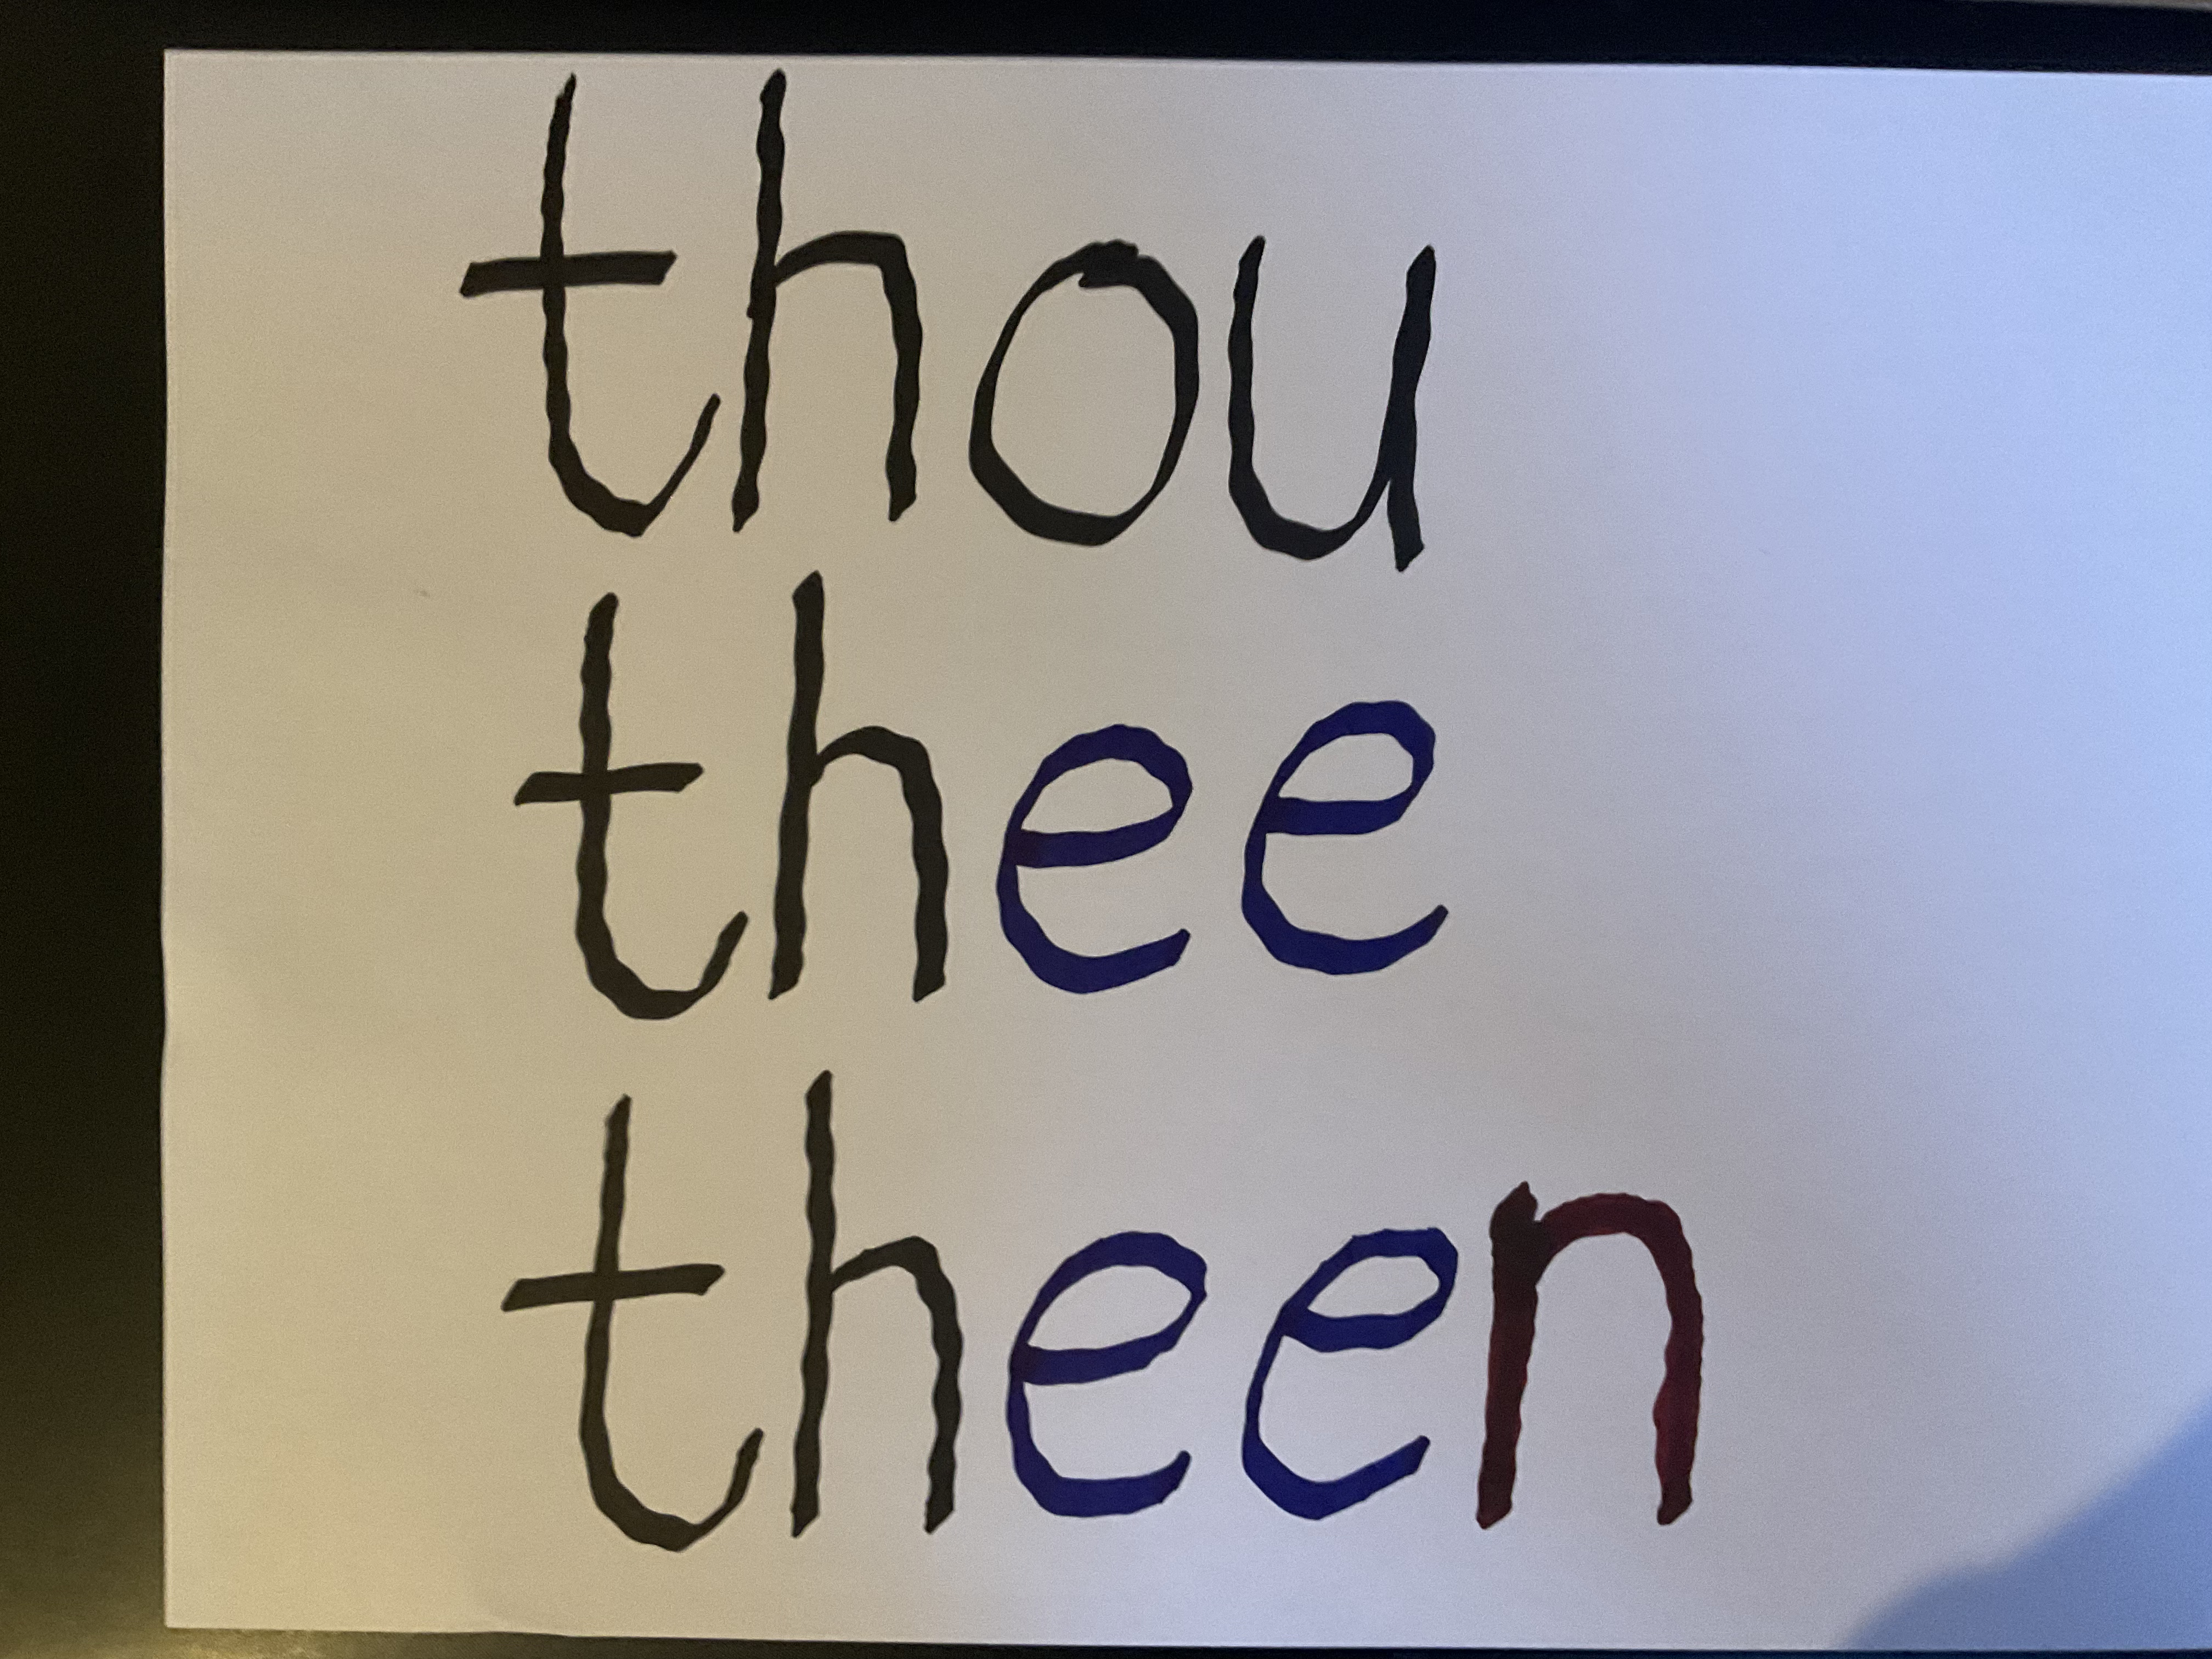 thou
thee
theen